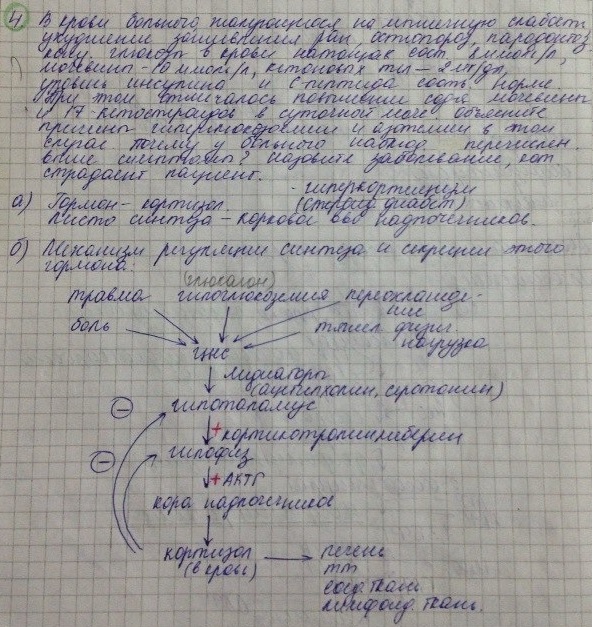 4) В крови больного жалующегося на мышечную слабость
ухудшении заживления ран, остеопороз, пародонтоз
конц глюкозы в крови натощак сост. 8 ммоль/л,
мочевины - 10 ммоль/л, кетоновых тел - 2 мг/дл,
уровень инсулина и С-пептида соотв. норме
При этом отмечалось повышении содерж мочевины
и 17-кетостероидов в суточной моче объясните
причины гипергликемии и азотемии в этом
случае почему у больного наблюд перечислен
выше симптомы? Назовите заболевание, кот
страдает пациент.
- гиперкортицизм
а) Гормон - кортизол. (стероид диабет)
Место синтеза - корковое в-во надпочечников.
б) Механизм регуляции синтеза и секреции этого
гормона:
(глюкагон)
травма гипогликемия переохлажде-
ние
боль тяжел физич.
нагрузка
ЦНС
медиаторы
(ацетилхолин, серотонин)
− гипоталамус
+ кортикотропинлиберин
− гипофиз
+ АКТГ
кора надпочечников
кортизол → печень
(в кровь) тт
соед ткань
лимфоид. ткань.